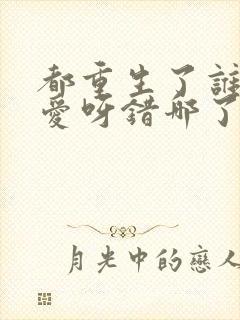 都重生了誰
愛呀錯那了
月光中的戀人